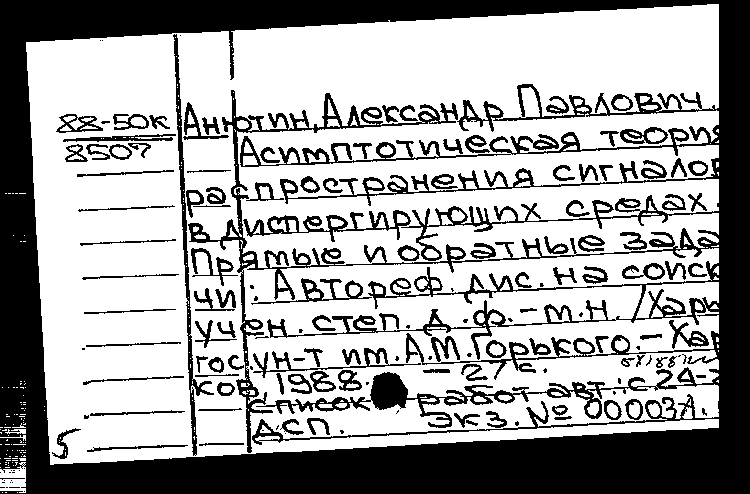 88-50к
8507
Анютин, Александр Павлович.
Асимптотическая теория
распространения сигналов
в диспергирующих средах.
Прямые и обратные зада
чи: Автореф. дис. на соиск
учен. степ. д.ф.-м.н. /Харь
гос. ун-т им. А.М.Горького.- Хар
ков, 1988. - 27 с.
Список работ авт.: с.24-
ДСП. Экз. № 00003А.
5